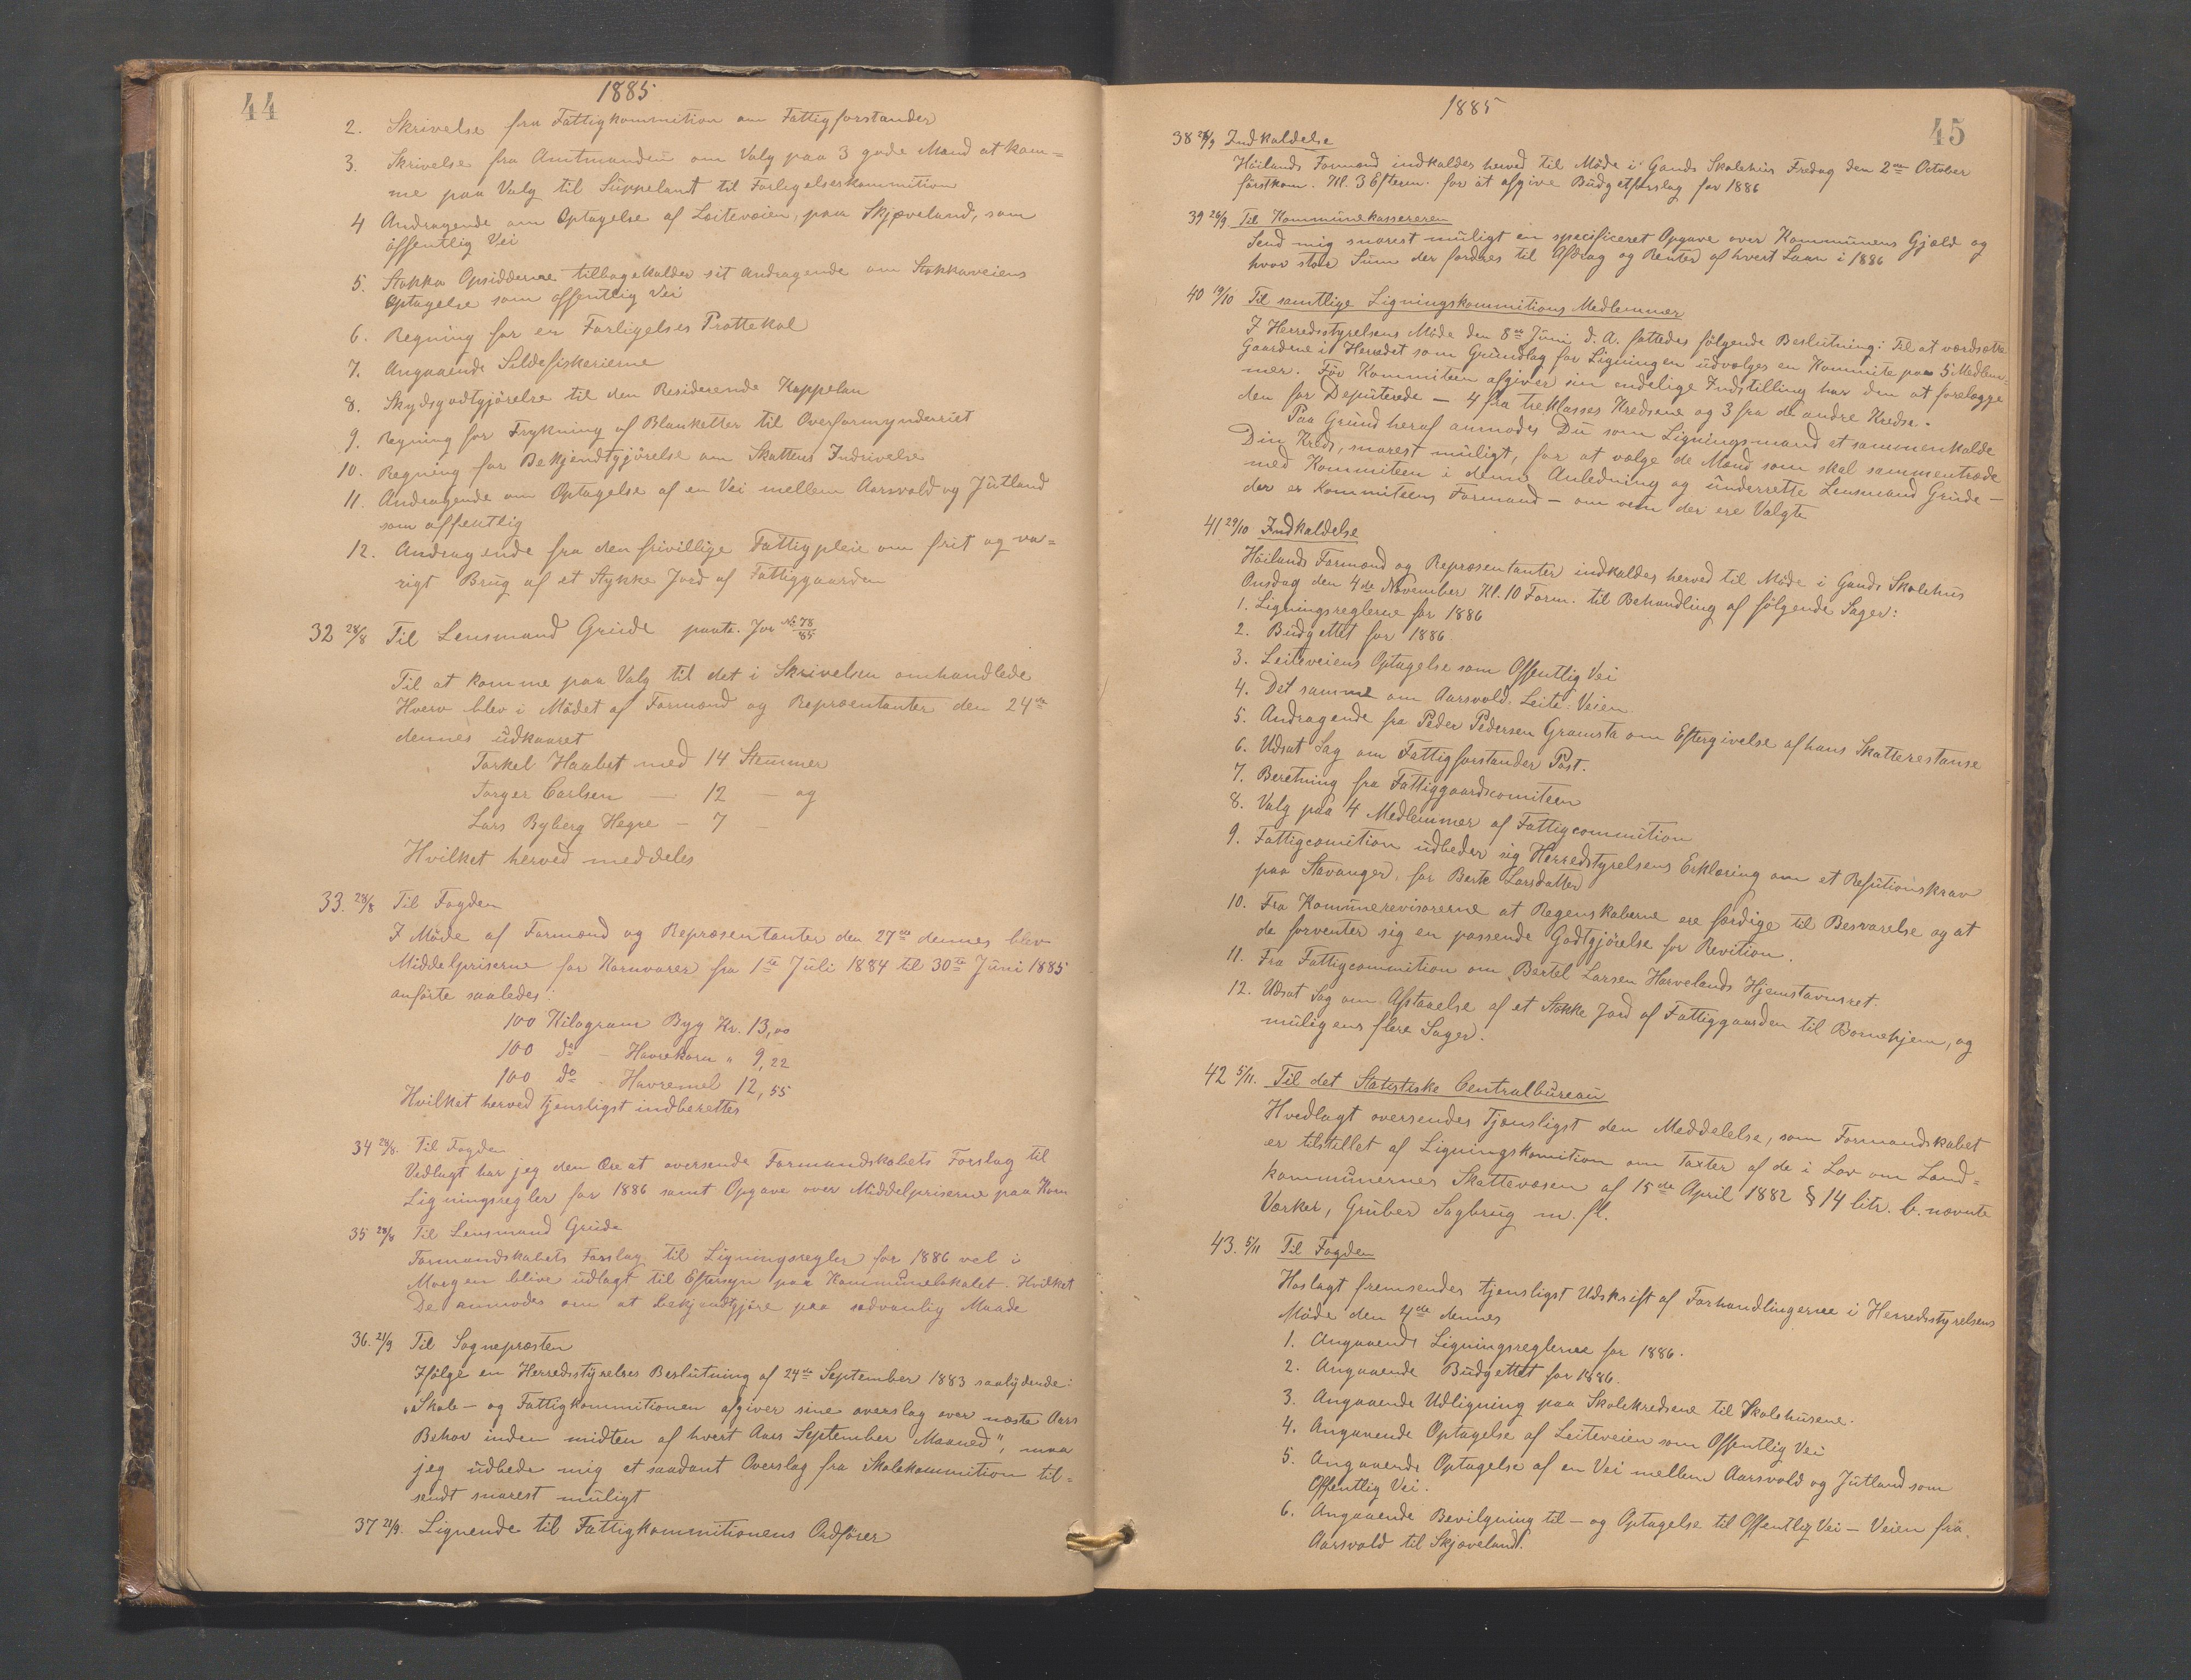 44
1885
2. Skrivelse fra Fattigkommition om Fattigforstander
3. Skrivelse fra Amtmanden om Valg paa 3 gode Mænd at kom=
me paa Valg til Süppelant til Forligelseskommition
4 Andragende om Optagelse af Leiteveien, paa Skjæveland, som
offentlig Vei
5. Stokka Opsidderne tilbagekalder sit Andragende om Stokkaveiens
Optagelse som offentlig Vei
6. Regning for en Forligelses Prottekol
7. Angaaende Sildefiskerierne
8. Skydsgodtgjörelse til den Residerende Kappelan
9. Regning for Trykning af Blanketter til Overformynderiet
10. Regning for Bekjendtgjörelse om Skattens Indrivelse
11. Andragende om Optagelse af en Vei mellem Aarsvold og Jütland
som offentlig
12. Andragende fra den frivillige Fattigpleie om frit og va=
rigt Brug af et Stykke Jord af Fattiggaarden
32 28/8 Til Lensmand Grüde paate. Jor No 78/85
Til at komme paa Valg til det i Skrivelsen omhandlede
Hverv blev i Mödet af Formænd og Repræsentanter den 24de
dennes üdkaaret
Torkel Haabet med 14 Stemmer
Torger Carlsen — 12 — og
Lars Byberg Hegre — 7 —
Hvilket herved meddeles
33. 28/8 Til Fogden
I Möde af Formænd og Repræsentanter den 27de dennes blev
Middelpriserne for Kornvarer fra 1ste Juli 1884 til 30te Juni 1885
anförte saaledes:
100 Kilogram Byg Kr. 13,00
100 do - Havrekorn " 9,22
100 do - Havremel 12,55
Hvilket herved tjensligst indberettes
34 28/8. Til Fogden
Vedlagt har jeg den Ære at oversende Formandskabets Forslag til
Ligningsregler for 1886 samt Opgave over Middelpriserne paa Korn
35 28/8 Til Lensmand Grüde
Formandskabets Forslag til Ligningsregler for 1886 vel i
Morgen blive üdlagt til Eftersyn paa Kommünelokalet. Hvilket
De anmodes om at bekjendtgjöre paa sædvanlig Maade
36. 21/9 Til Sognepræsten
Ifölge en Herredsstyrelses Beslütning af 24de September 1883 saalydende:
"Skole- og Fattigkommitionen afgiver sine overslag over næste Aars
Behov inden midten af hvert Aars September Maaned", maa
jeg üdbede mig et saadant Overslag fra Skolekommition til=
sendt snarest müligt
37 21/9. Lignende til Fattigkommitionens Ordförer
1885
45
38 26/9 Indkaldelse
Höilands Formænd indkaldes herved til Möde i Gands Skolehüs Fredag den 2den October
förstkom. Kl. 3 Efterm. for at afgive Büdgetforslag for 1886
39 26/9 Til Kommünekassereren
Send mig snarest müligt en specificeret Opgave over Kommünens Gjæld og
hvor stor Sum der fordres til Afdrag og Renter af hvert Laan i 1886
40 19/10 Til samtlige Ligningskommitions Medlemmer
I Herredsstyrelsens Möde den 8de Jüni d. A. fattedes fölgende Beslütning: Til at værdsætte
Gaardene i Herredet som Gründlag for Ligningen üdvælges en Kommite paa 5 Medlem=
mer. Før Kommiteen afgiver sin endelige Indstilling har den at forelægge
den for Depüterede — 4 fra treklasses Kredsene og 3 fra de andre Kredse.
Paa Gründ heraf anmodes Dü som Ligningsmand at sammenkalde
Din Kreds, snarest müligt, for at vælge de Mænd som skal sammentræde
med Kommiteen i denne Anledning og ünderrette Lensmand Grüde —
der er Kommiteens Formand — om vem der ere Valgte
41 29/10 Indkaldelse
Höilands Formænd og Repræsentanter indkaldes herved til Möde i Gands Skolehüs
Onsdag den 4de November Kl. 10 Form. til Behandling af fölgende Sager:
1. Ligningsreglerne for 1886
2. Büdgettet for 1886
3. Leiteveiens Optagelse som Offentlig Vei
4. Det samme om Aarsvold-Leite-Veien
5. Andragende fra Peder Pedersen Gramstø om Eftergivelse af hans Skatterestanse
6. Udsat Sag om Fattigforstander Post.
7. Beretning fra Fattiggaardscomiteen
8. Valg paa 4 Medlemmer af Fattigcommition
9. Fattigcomition üdbeder sig Herredstyrelsens Erklæring om et Refütionskrav
paa Stavanger, for Berte Larsdatter
10. Fra Komünerevisorerne at Regenskaberne ere færdige til Besvarelse og at
de forventer sig en passende Godtgjörelse for Revition.
11. Fra Fattigcommition om Bertel Larsen Harvelands Hjemstavnsret.
12. Udsat Sag om Afstaaelse af et Støkke Jord af Fattiggaarden til Barnehjem, og
müligens flere Sager.
42 5/11. Til det Statistiske Centralbüreaü
Hvedlagt oversendes Tjensligst den Meddelelse, som Formandskabet
er tilstillet af Ligningskomition om Taxter af de i Lov om Land=
kommünernes Skattevæsen af 15de April 1882 § 14 litr. b. nævnte
Værker, Grüber Sagbrug m. fl.
43. 5/11 Til Fogden
Hoslagt fremsendes tjensligst Udskrift af Forhandlingerne i Herredsstyrelsens
Möde den 4de dennes
1. Angaaende Ligningsreglerne for 1886.
2. Angaaende Büdgettet for 1886.
3. Angaaende Udligning paa Skolekredsene til Skolehüsene.
4. Angaaende Optagelse af Leiteveien som Offentlig Vei
5. Angaaende Optagelse af en Vei mellem Aarsvold og Jütland som
Offentlig Vei.
6. Angaaende Bevilgning til — og Optagelse til Offentlig Vei — Veien fra
Aarsvold til Skjæveland.